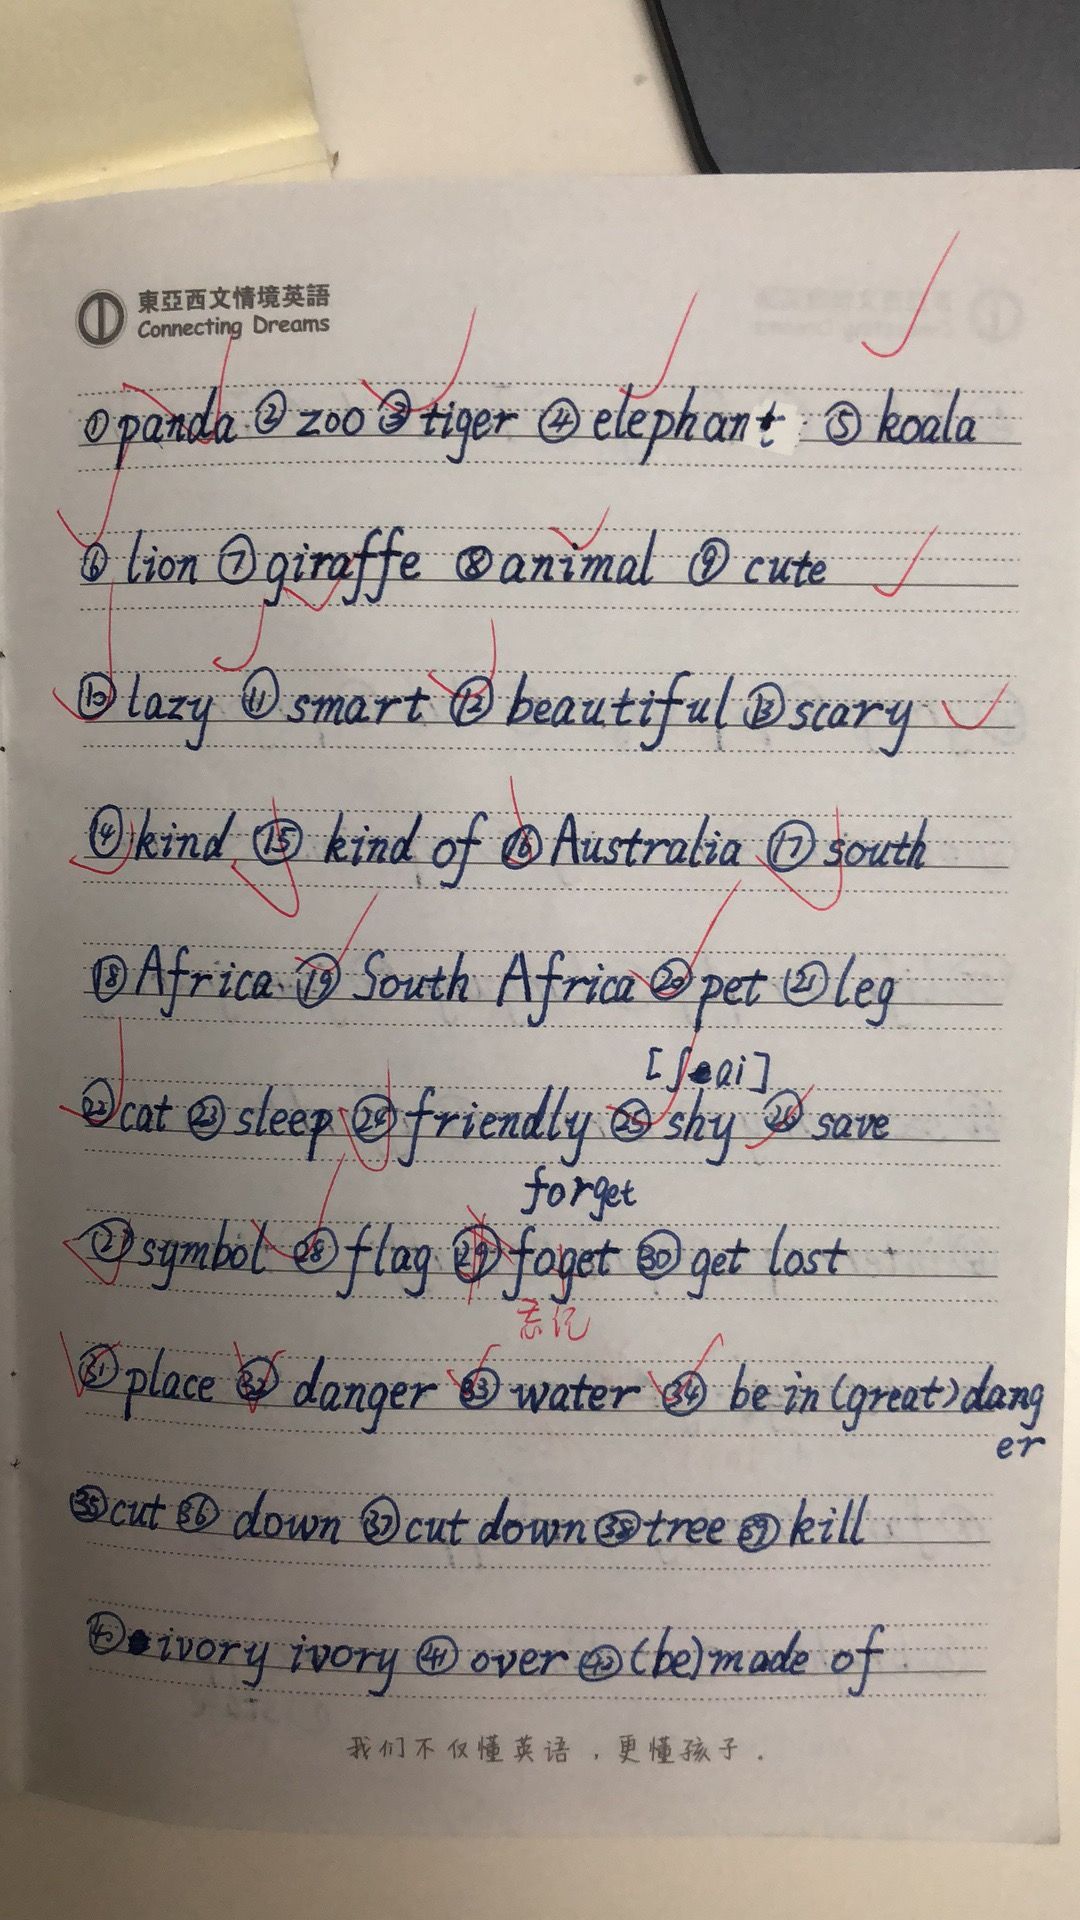 東亞西文情境英語
Connecting Dreams
①panda ②zoo ③tiger ④elephant ⑤koala
⑥lion ⑦giraffe ⑧animal ⑨cute
⑩lazy ⑪smart ⑫beautiful ⑬scary
⑭kind ⑮kind of ⑯Australia ⑰south
⑱Africa ⑲South Africa ⑳pet ㉑leg
[ʃai]
㉒cat ㉓sleep ㉔friendly ㉕shy ㉖save
forget
㉗symbol ㉘flag ㉙foget ㉚get lost
忘记
㉛place ㉜danger ㉝water ㉞be in (great) dang
er
㉟cut ㊱down ㊲cut down ㊳tree ㊴kill
㊵ivory ivory ㊶over ㊷(be) made of
我们不仅懂英语，更懂孩子.